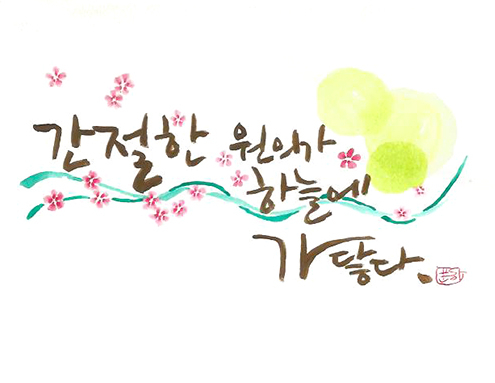 간절한 원의가
하늘에
가 닿다.